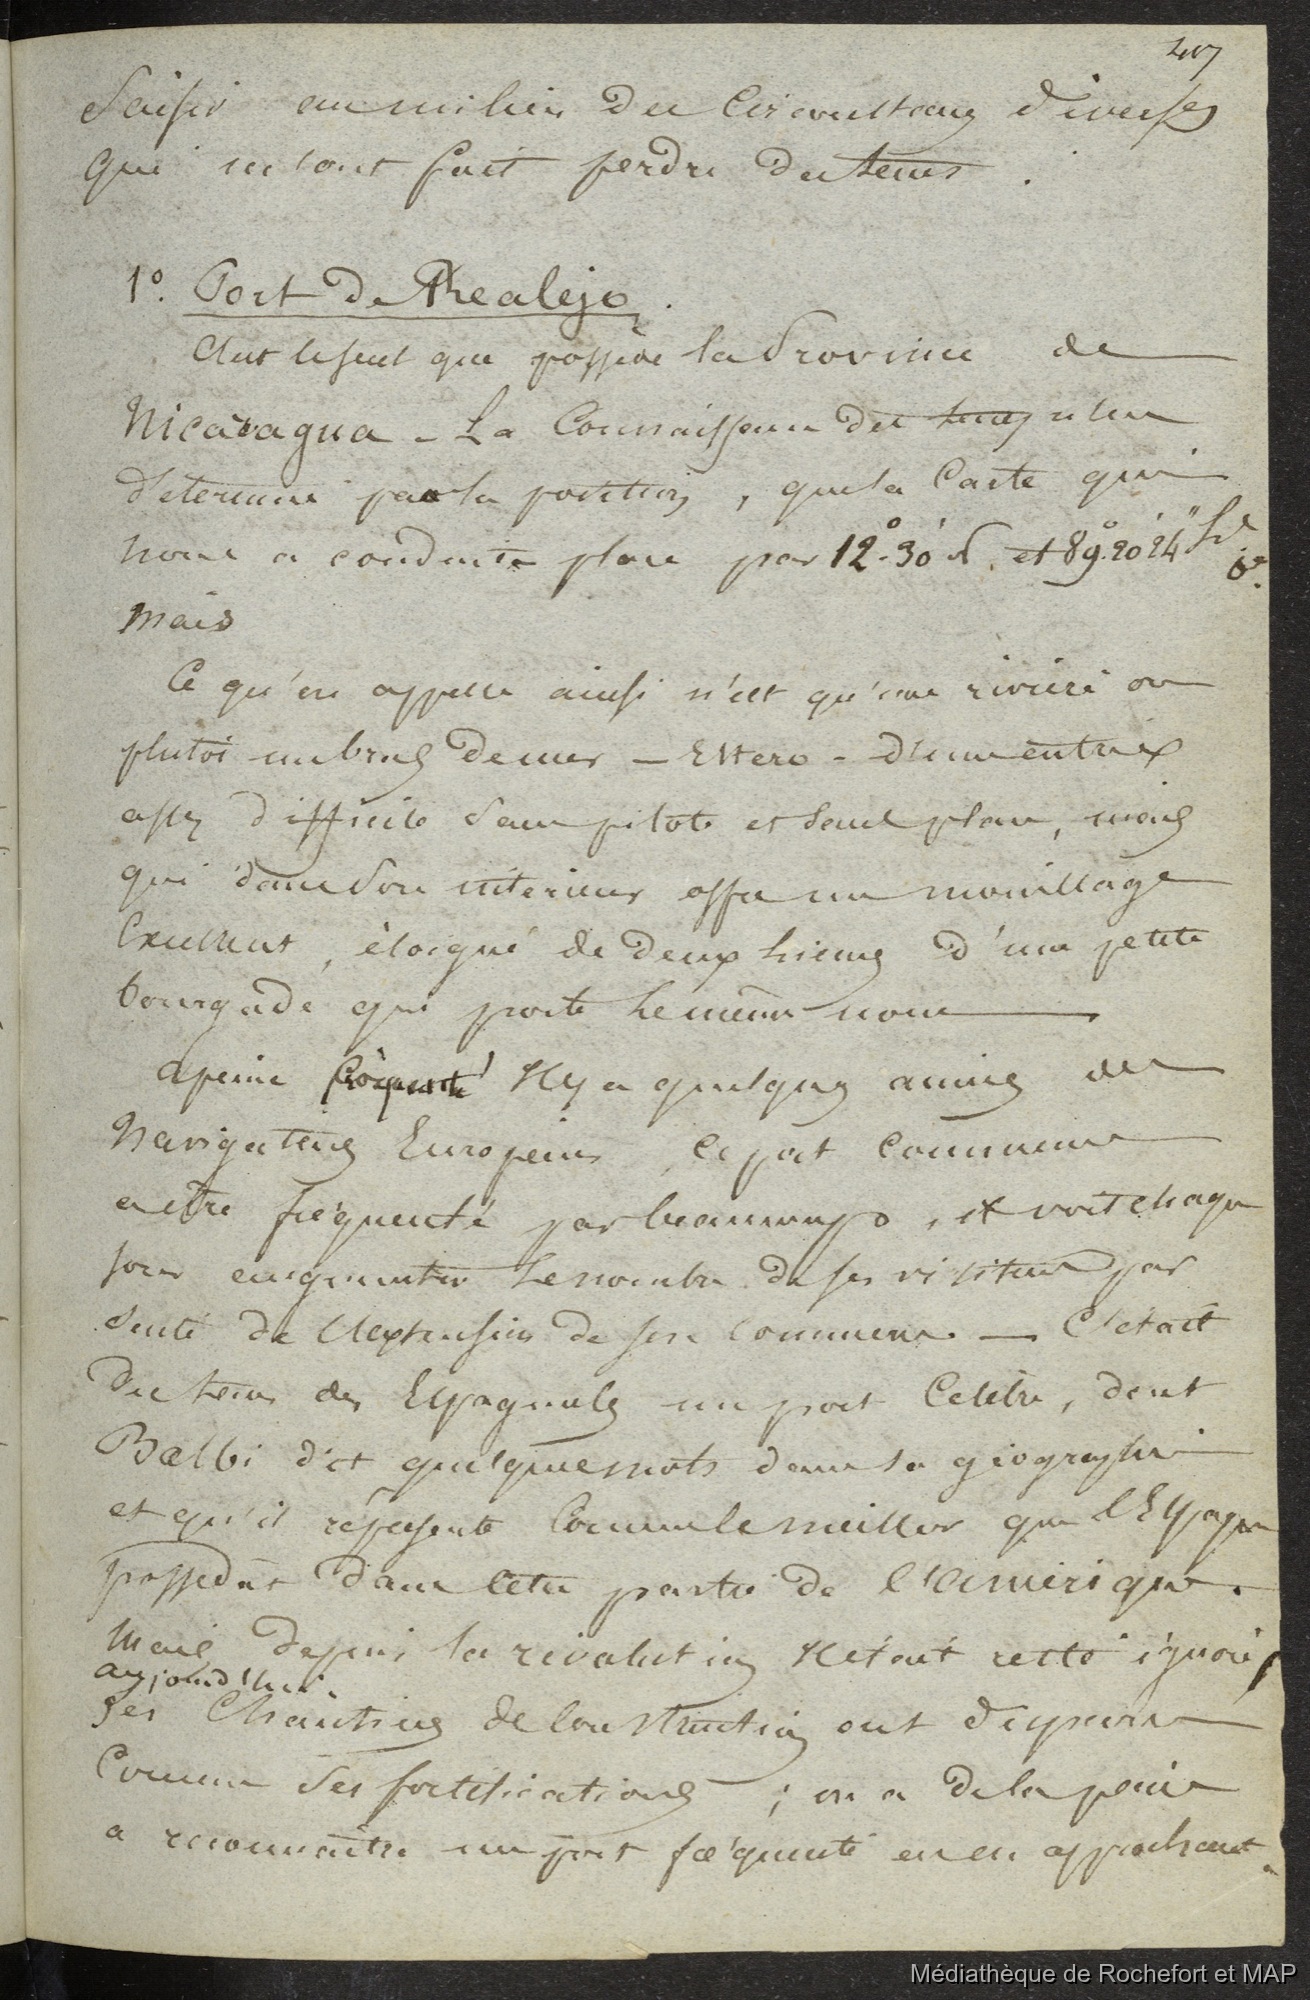 417
Saisir au milieu des Circonstances diverses
qui m'ont fait perdre du tems.
1º. Port de Realejo.
C'est le seul que possède la Province de
Nicaragua - La Connaissance des tems n'en
détermine pas la position, que la Carte qui
nous a conduits place par 12º.30' N. et 89º.20'24" Lg
Oc.
Mais
Ce qu'on appelle ainsi n'est qu'une rivière ou
plutôt un bras de mer - Estero - d'une entrée
assez difficile sans pilote et sans plan, mais
qui dans son intérieur offre un mouillage
Excellent, éloigné de deux lieues d'une petite
bourgade qui porte le même nom
a peine fréquenté il y a quelques années des
Navigateurs Européens, ce port commence
a être fréquenté par beaucoup, et voit chaque
jour augmenter le nombre de ses visiteurs par
suite de l'extension de son commerce. - C'était
du tems des Espagnols un port Célèbre, dont
Balbi dit quelques mots dans sa géographie
et qu'il représente Comme le meilleur que l'Espagne
possédat dans cette partie de l'amérique.
Mais depuis la révolution il était resté ignoré,
aujourd'hui
Ses Chantiers de Construction ont disparu
Comme ses fortifications ; on a de la peine
a reconnaître un port fréquenté en en approchant.
Médiathèque de Rochefort et MAP